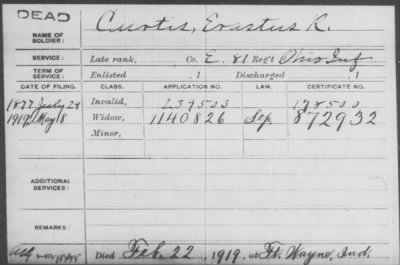 DEAD
NAME OF SOLDIER: Curtis, Erastus R.
SERVICE: Late rank, Co. E. 81 Reg't Ohio Inf
TERM OF SERVICE: Enlisted , 1 Discharged , 1
DATE OF FILING. CLASS. APPLICATION NO. LAW. CERTIFICATE NO.
1877 July 24 Invalid, 239503 178500
1919 May 8 Widow, 1140826 Sep. 872932
Minor,
ADDITIONAL SERVICES:
REMARKS:
Died Feb. 22, 1919, at Ft. Wayne, Ind.